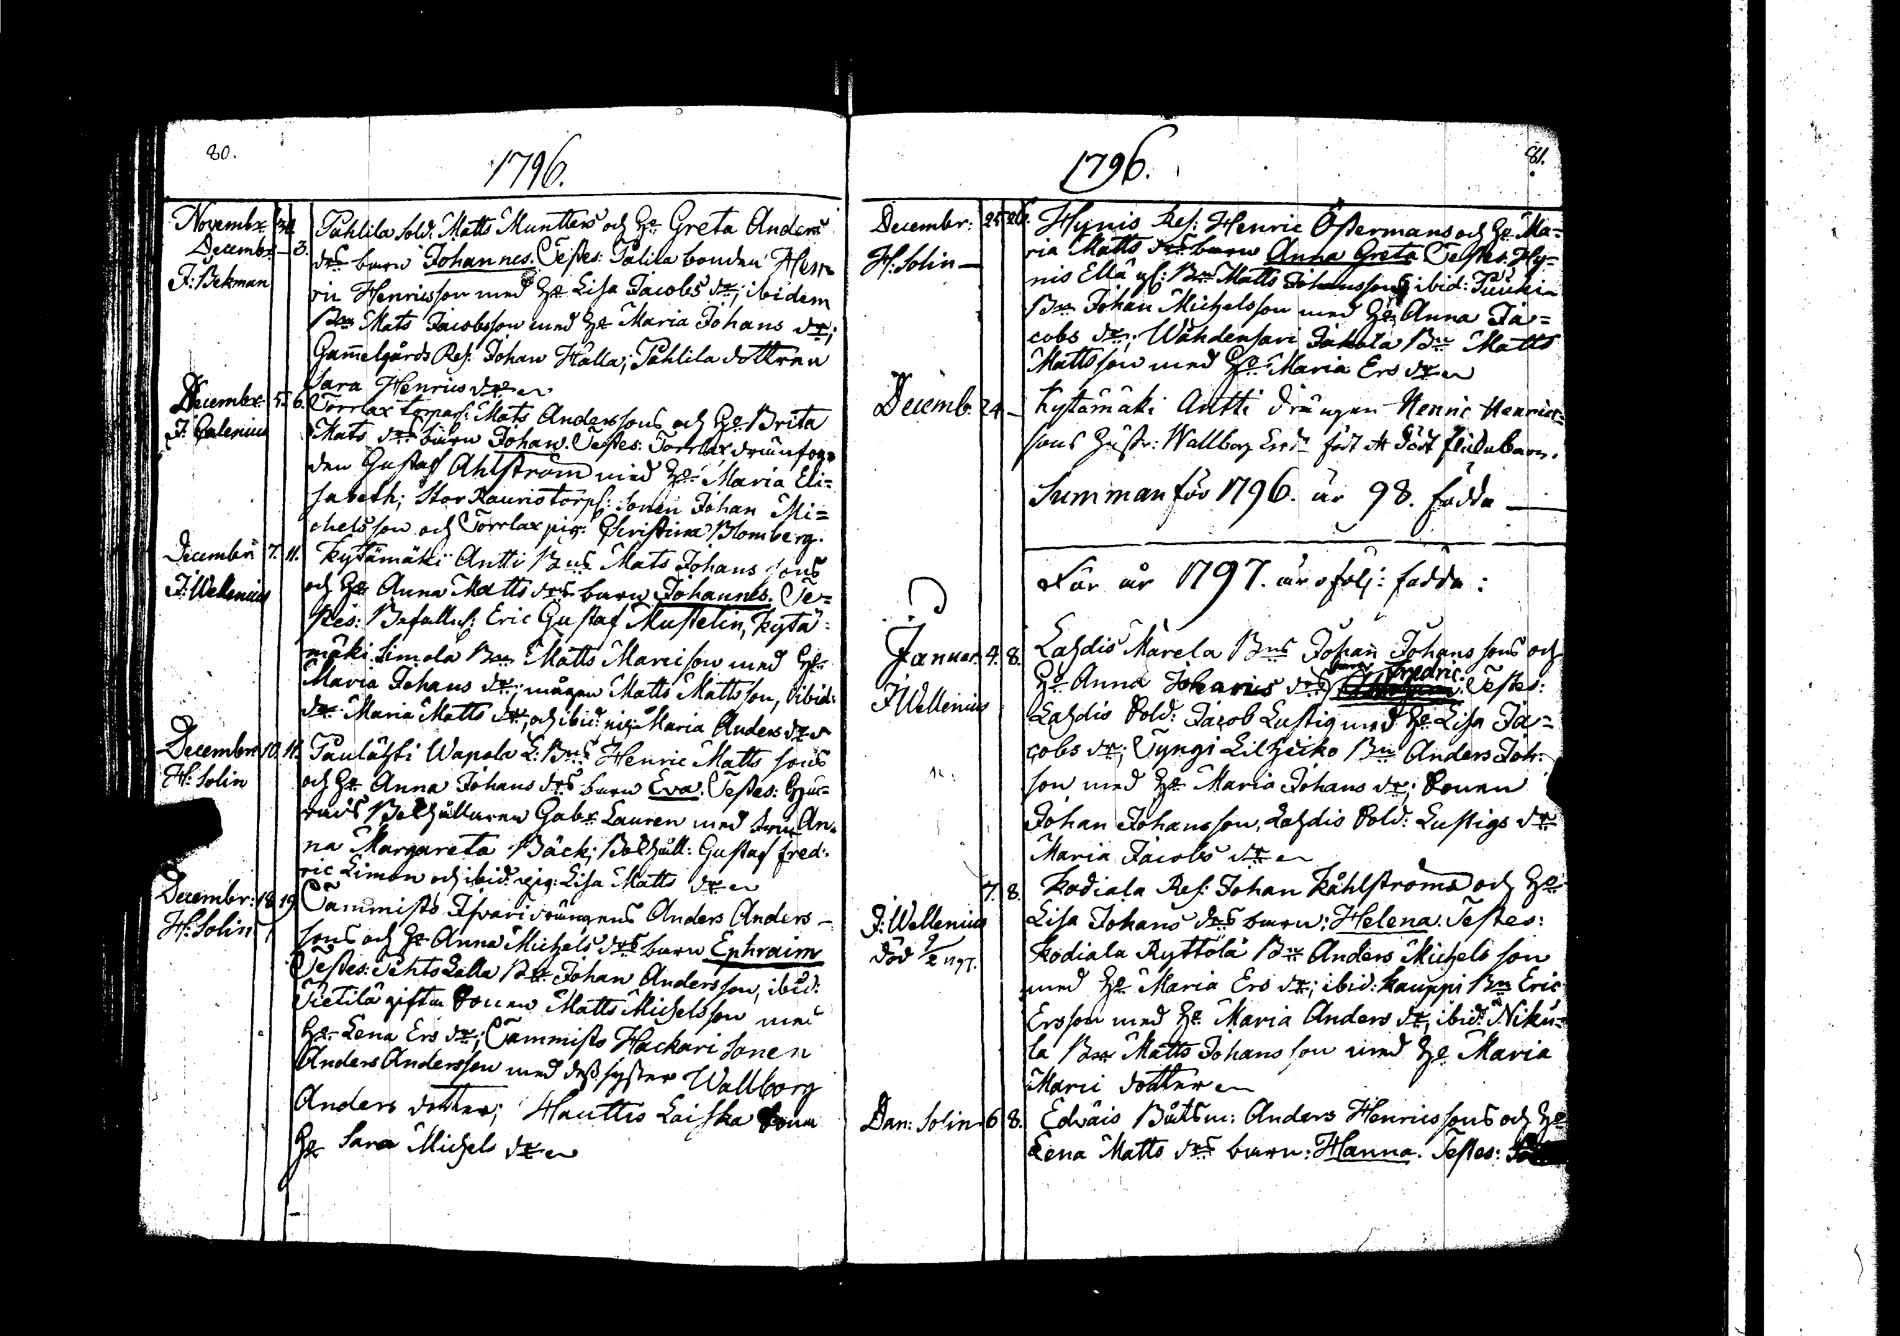 80.
1796.
Novembr. 30.
Decembr. — 3.
J: Bekman
Pahlila sold: Matts Munters och h:o Greta Anders
drs barn Johannes. Testes: Palila bonden Hen
ric Henricsson med h:o Lisa Jacobs dr; ibidem
Bn Mats Jacobsson med h:o Maria Johans dr;
Gam̄elgårds Ref: Johan Hålla; Pahlila dottren
Sara Henrics dr
Decembr. 5. 6.
J: Galenius
Torrlax torpar: Mats Anderssons och h:o Brita
Mats drs barn Johan. Testes: Torrlax
den Gustaf Ahlström med h:o Maria Eli=
sabeth; Stor Kauris torp: sonen Johan Mi=
chelsson och Torrlax pig: Christina Blomberg.
Decembr. 7. 11.
J: Wellenius
Kytämäki Antti Bns Mats Johans sons
och h:o Anna Matts drs barn Johannes. Te=
stes: Befalln: Eric Gustaf Mustelin, Kytä=
mäki Simola Bn Matts Marcisson med h:o
Maria Johans dr; mågen Matts Mattsson, ibid:
dr: Maria Matts dr; och ibid: pig: Maria Anders dr
Decembr. 10. 11.
H: Solin
Paulätski Wapola L: Bns Henric Matts sons
och h:o Anna Johans drs barn Eva. Testes:
Bokhållaren Gabr: Lauren med frun An=
na Margareta Bäck; Bokhåll: Gustaf fred:
ric Limon och ibid: pig: Lisa Matts dr
Decembr: 18. 19
H: Solin
Tammisto Isvari drängens Anders Anders
sons och h:o Anna Michels drs barn Ephraim
Testes: Lalla Bn Johan Andersson, ibid:
Pietilä gifta sonen Matts Michelsson med
h:o Lena Ers dr; Tammisto Hackari sonen
Anders Andersson med dess syster Wallborg
Anders dotter; Hauttis Laiska sonu
h:o Sara Michels dr
81.
1796.
Decembr: 25 26.
H: Solin —
Hynis Ref: Henric Östermans och h:o Ma=
ria Matts drs barn Anna Greta Testes: Hy=
nis Ellä Bn Matts Johansson, ibid: Punki
Bn Johan Michelsson med h:o Anna Ja=
cobs dr; Wåhdensari Jakola Bn Matts
Mattsson med h:o Maria Ers dr
Decemb. 24 —
Kytämäki Antti drängen Henric Henrics=
sons hustr: Wallborg Ersdr födt ett dödt flickebarn.
Summan för 1796. är 98. födda —
För år 1797. äro följ: födde:
Januar. 4. 8.
J: Wellenius
Lahdis Marela Bns Johan Johans sons och
h:o Anna Johans drs barn Fredric. Testes:
Lahdis Sold: Jacob Lustig med h:o Lisa Ja=
cobs dr; Tyngi Lilheiko Bn Anders Joh:
son med h:o Maria Johans dr; sonen
Johan Johansson, Lahdis Sold: Lustigs dr
Maria Jacobs dr
7. 8.
J: Wellenius
död 9/2 1797.
Kodiala Ref: Johan Kåhlströms och h:o
Lisa Johans drs barn: Helena. Testes:
Kodiala Ryttölä Bn Anders Michelsson
med h:o Maria Ers dr; ibid: Kauppi Bn Eric
Ersson med h:o Maria Anders dr, ibid: Niku=
la Bn Matts Johansson med h:o Maria
Marci dotter
Dan: Solin 6 8.
Edwäis Båtsm: Anders Henricssons och h:o
Lena Matts drs barn: Hanna. Testes: